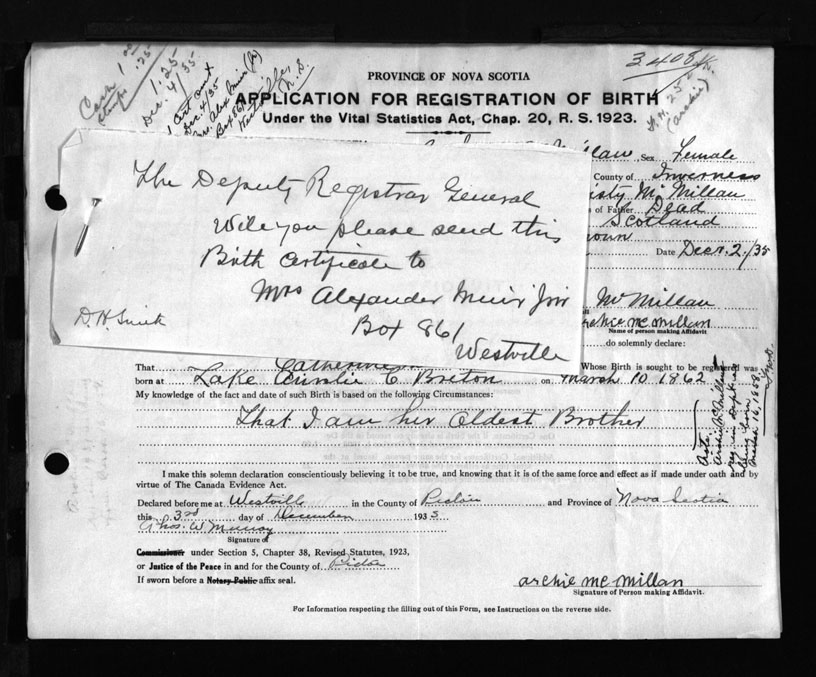 Cash 1.00
stamps .25
1.25
Dec. 4/35
1 Cert out
Dec 4/35
Mrs. Alex Muir (Jr)
Box 861
N.S.
3408
PROVINCE OF NOVA SCOTIA
APPLICATION FOR REGISTRATION OF BIRTH
Under the Vital Statistics Act, Chap. 20, R. S. 1923.
25¢
(archie)
The Deputy Registrar General
Will you please send this
Birth Certificate to
Mrs Alexander Muir Jnr
Box 861
Westville
D. H. Smith
Sex Female
County of Inverness
McMillan
of Father Dead
Scotland
Date Decr. 2./35
McMillan
archie mc millan
Name of person making Affidavit.
do solemnly declare:
That Catherine Whose Birth is sought to be registered was
born at Lake Ainslie C. Breton on March 10 1862
My knowledge of the fact and date of such Birth is based on the following Circumstances:
That I am her Oldest Brother
Archie McMillan
I make this solemn declaration conscientiously believing it to be true, and knowing that it is of the same force and effect as if made under oath and by
virtue of The Canada Evidence Act.
Declared before me at Westville in the County of Pictou and Province of Nova Scotia
this 3rd day of December 1935
Thos. W Murray
Signature of
Commissioner under Section 5, Chapter 38, Revised Statutes, 1923,
or Justice of the Peace in and for the County of Pictou
If sworn before a Notary Public affix seal.
archie mc millan
Signature of Person making Affidavit.
For Information respecting the filling out of this Form, see Instructions on the reverse side.